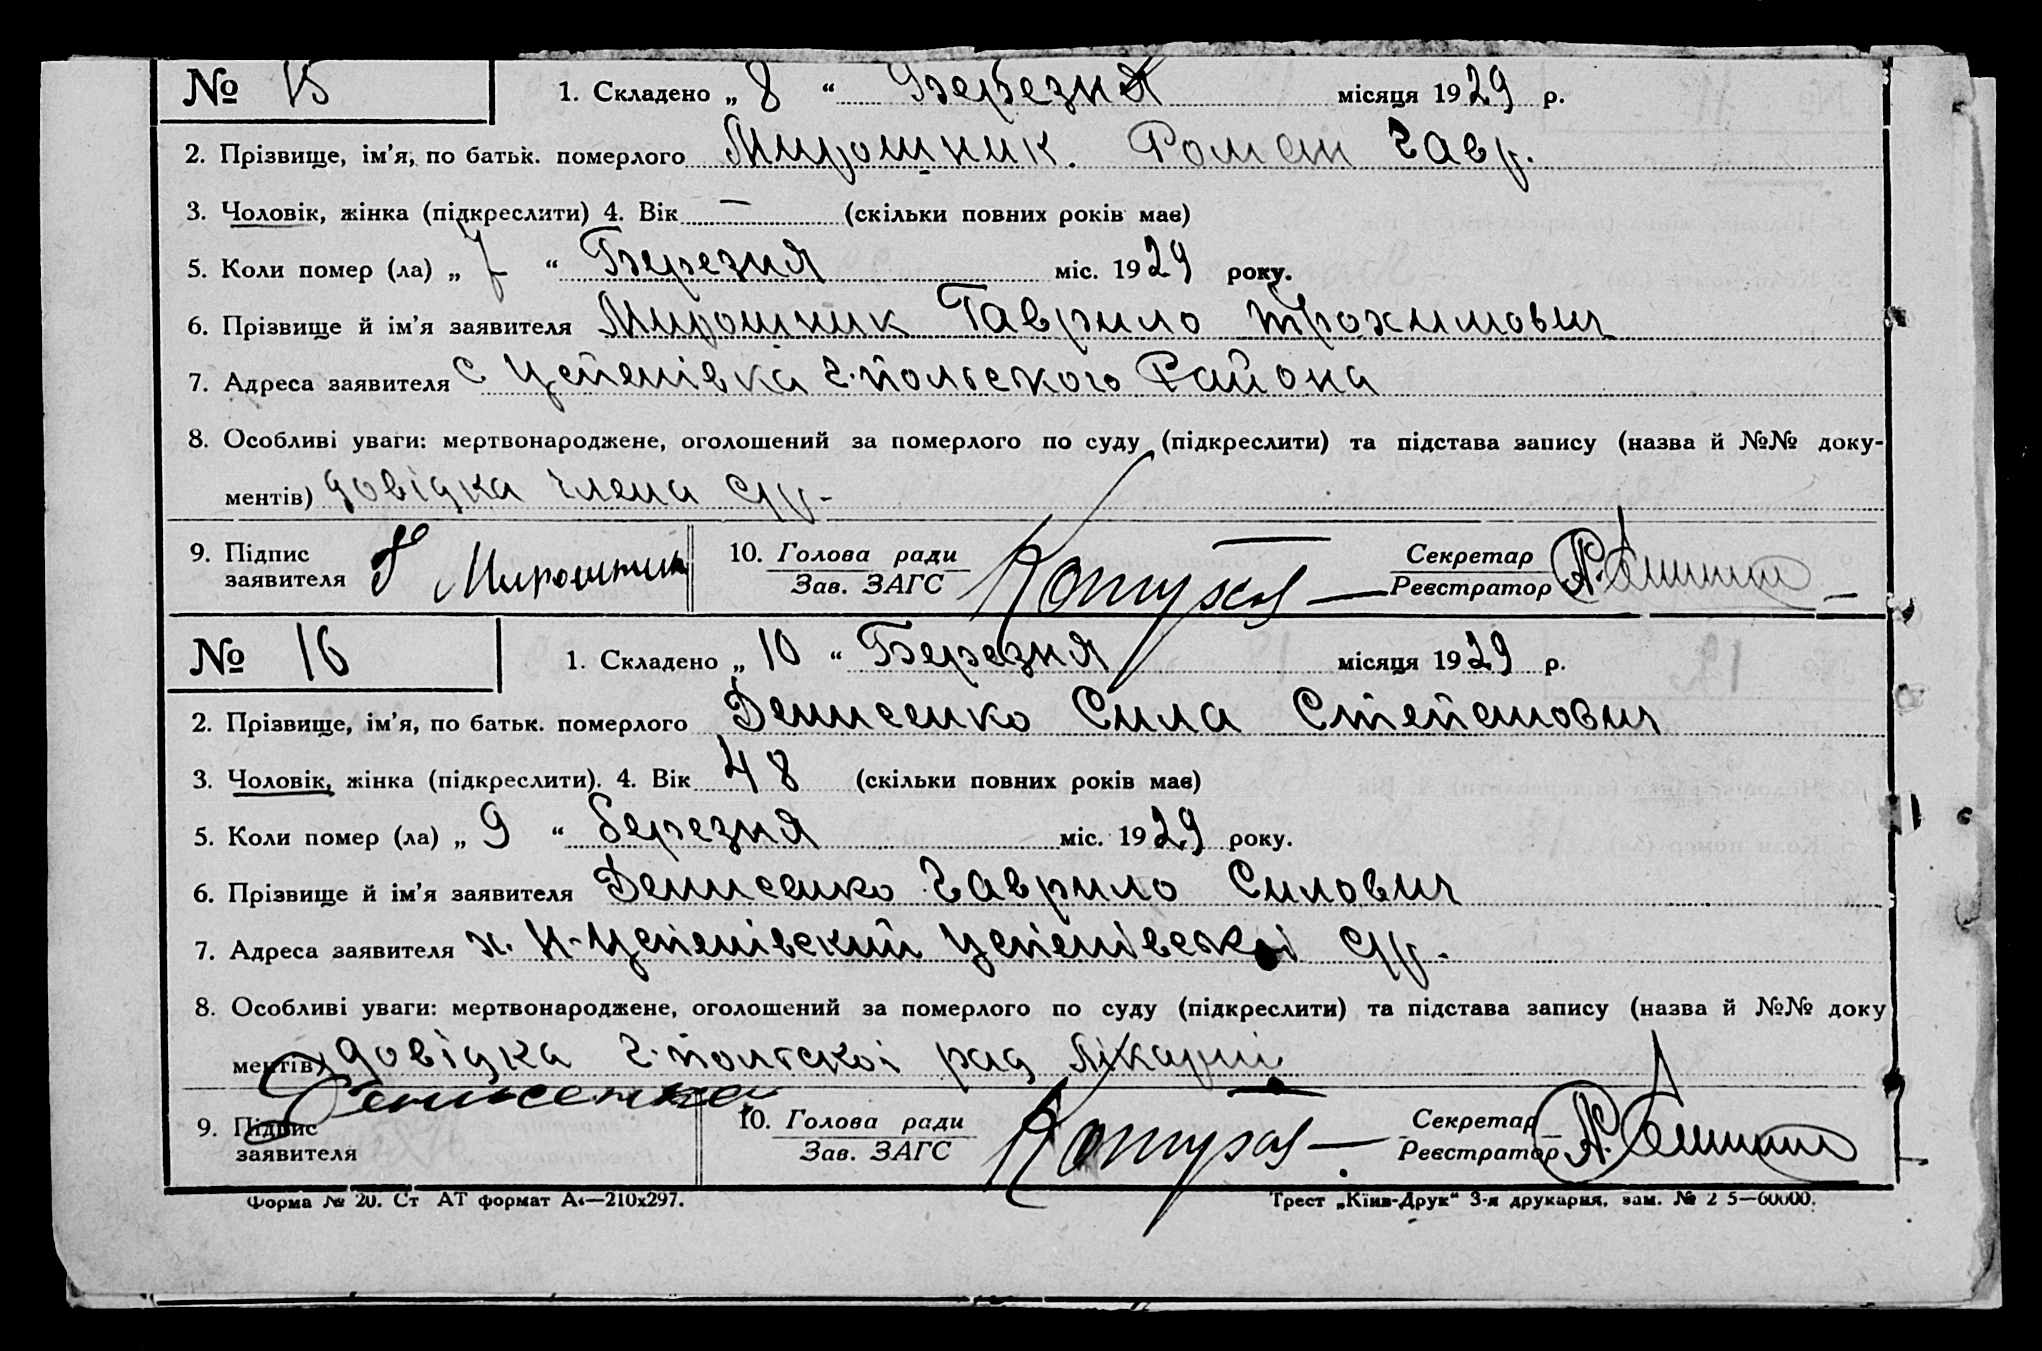 № 15 1. Складено „ 8 “ Березня місяця 1929 р.
2. Прізвище, ім’я, по батьк. померлого Мирошник. Роман Гавр.
3. Чоловік, жінка (підкреслити) 4. Вік — (скільки повних років має)
5. Коли помер (ла) „ 7 “ Березня міс. 1929 року.
6. Прізвище й ім’я заявителя Мирошник Гаврило Трохимович
7. Адреса заявителя с. Успенівка Г.польського Району
8. Особливі уваги: мертвонароджене, оголошений за померлого по суду (підкреслити) та підстава запису (назва й №№ доку-
ментів) довідка члена с/р.
9. Підпис Г Мирошник 10. Голова ради Секретар
заявителя Зав. ЗАГС Реєстратор
№ 16 1. Складено „ 10 “ Березня місяця 1929 р.
2. Прізвище, ім’я, по батьк. померлого Денисенко Сила Степанович
3. Чоловік, жінка (підкреслити). 4. Вік 48 (скільки повних років має)
5. Коли помер (ла) „ 9 “ березня міс. 1929 року.
6. Прізвище й ім’я заявителя Денисенко Гаврило Силович
7. Адреса заявителя х. Н-Успенівский Успенівської с/р.
8. Особливі уваги: мертвонароджене, оголошений за померлого по суду (підкреслити) та підстава запису (назва й №№ доку
ментів) довідка Г.польскої рад лікарні
Денисенко
9. Підпис 10. Голова ради Секретар
заявителя Зав. ЗАГС Реєстратор
Форма № 20. Ст АТ формат А4—210х297. Трест „Київ-Друк“ 3-я друкарня, зам. № 2 5—60000.